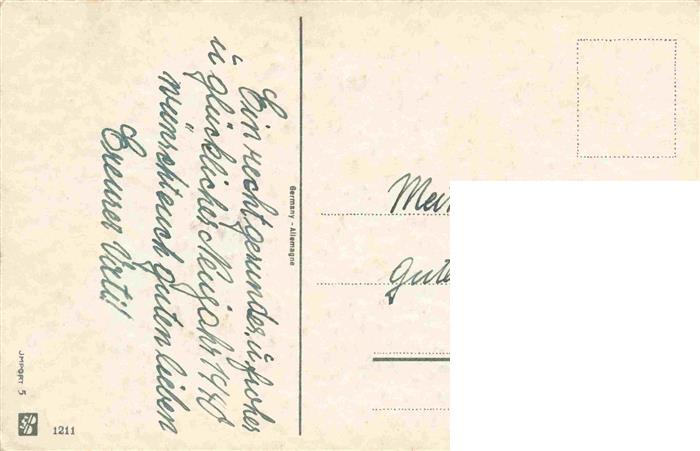 Ein recht gesundes, u. frohes
u. glückliches Neujahr 1940
wünscht euch guten lieben
Vati!
Germany - Allemagne
Gute
JMPORT 5
1211